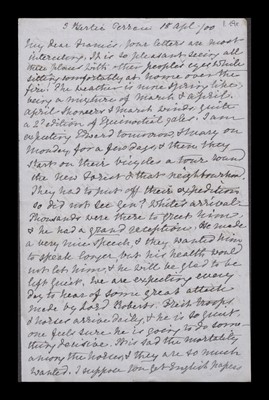 3 Harlie Terrace 18 Apl /00
My dear Francis. Your letters are most
interesting. It is so pleasant seeing all
these places with other people's eyes while
sitting comfortably at home over the
fire. The weather is now Spring like,
being a mixture of March & April.
April showers & March winds quite
a 2d edition of Equinoctial gales. I am
expecting Edward tomorrow & Mary on
Monday for a few days & then they
start on their bicycles a tour round
the New Forest & that neighbourhood.
They had to put off their expedition
so did not see Genl White's arrival
Thousands were there to greet him,
& he had a grand reception. He made
a very nice speech & they wanted him
to speak longer but his health would
not let him & he will be glad to be
left quiet. We are expecting every
day to hear of some great attack
made by Lord Roberts. Fresh troops
& horses arrive daily & he is so quiet
one feels sure he is going to do some
thing decisive. It is sad the mortality
among the horses & they are so much
wanted. I suppose you get English papers